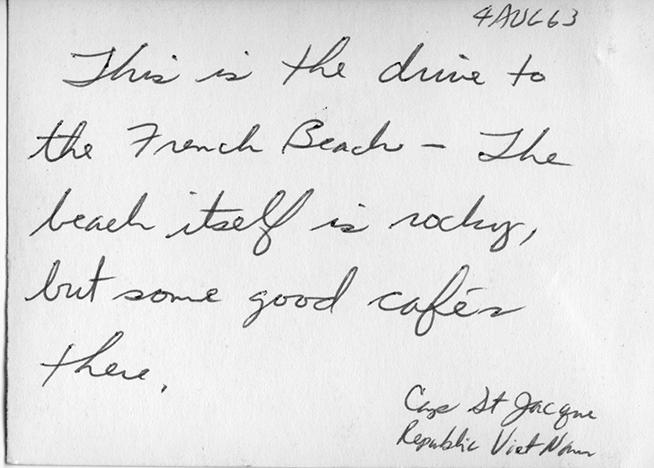 4AUG63
This is the drive to
the French Beach - The
beach itself is rocky,
but some good cafés
there.
Cape St Jacque
Republic Viet Nam